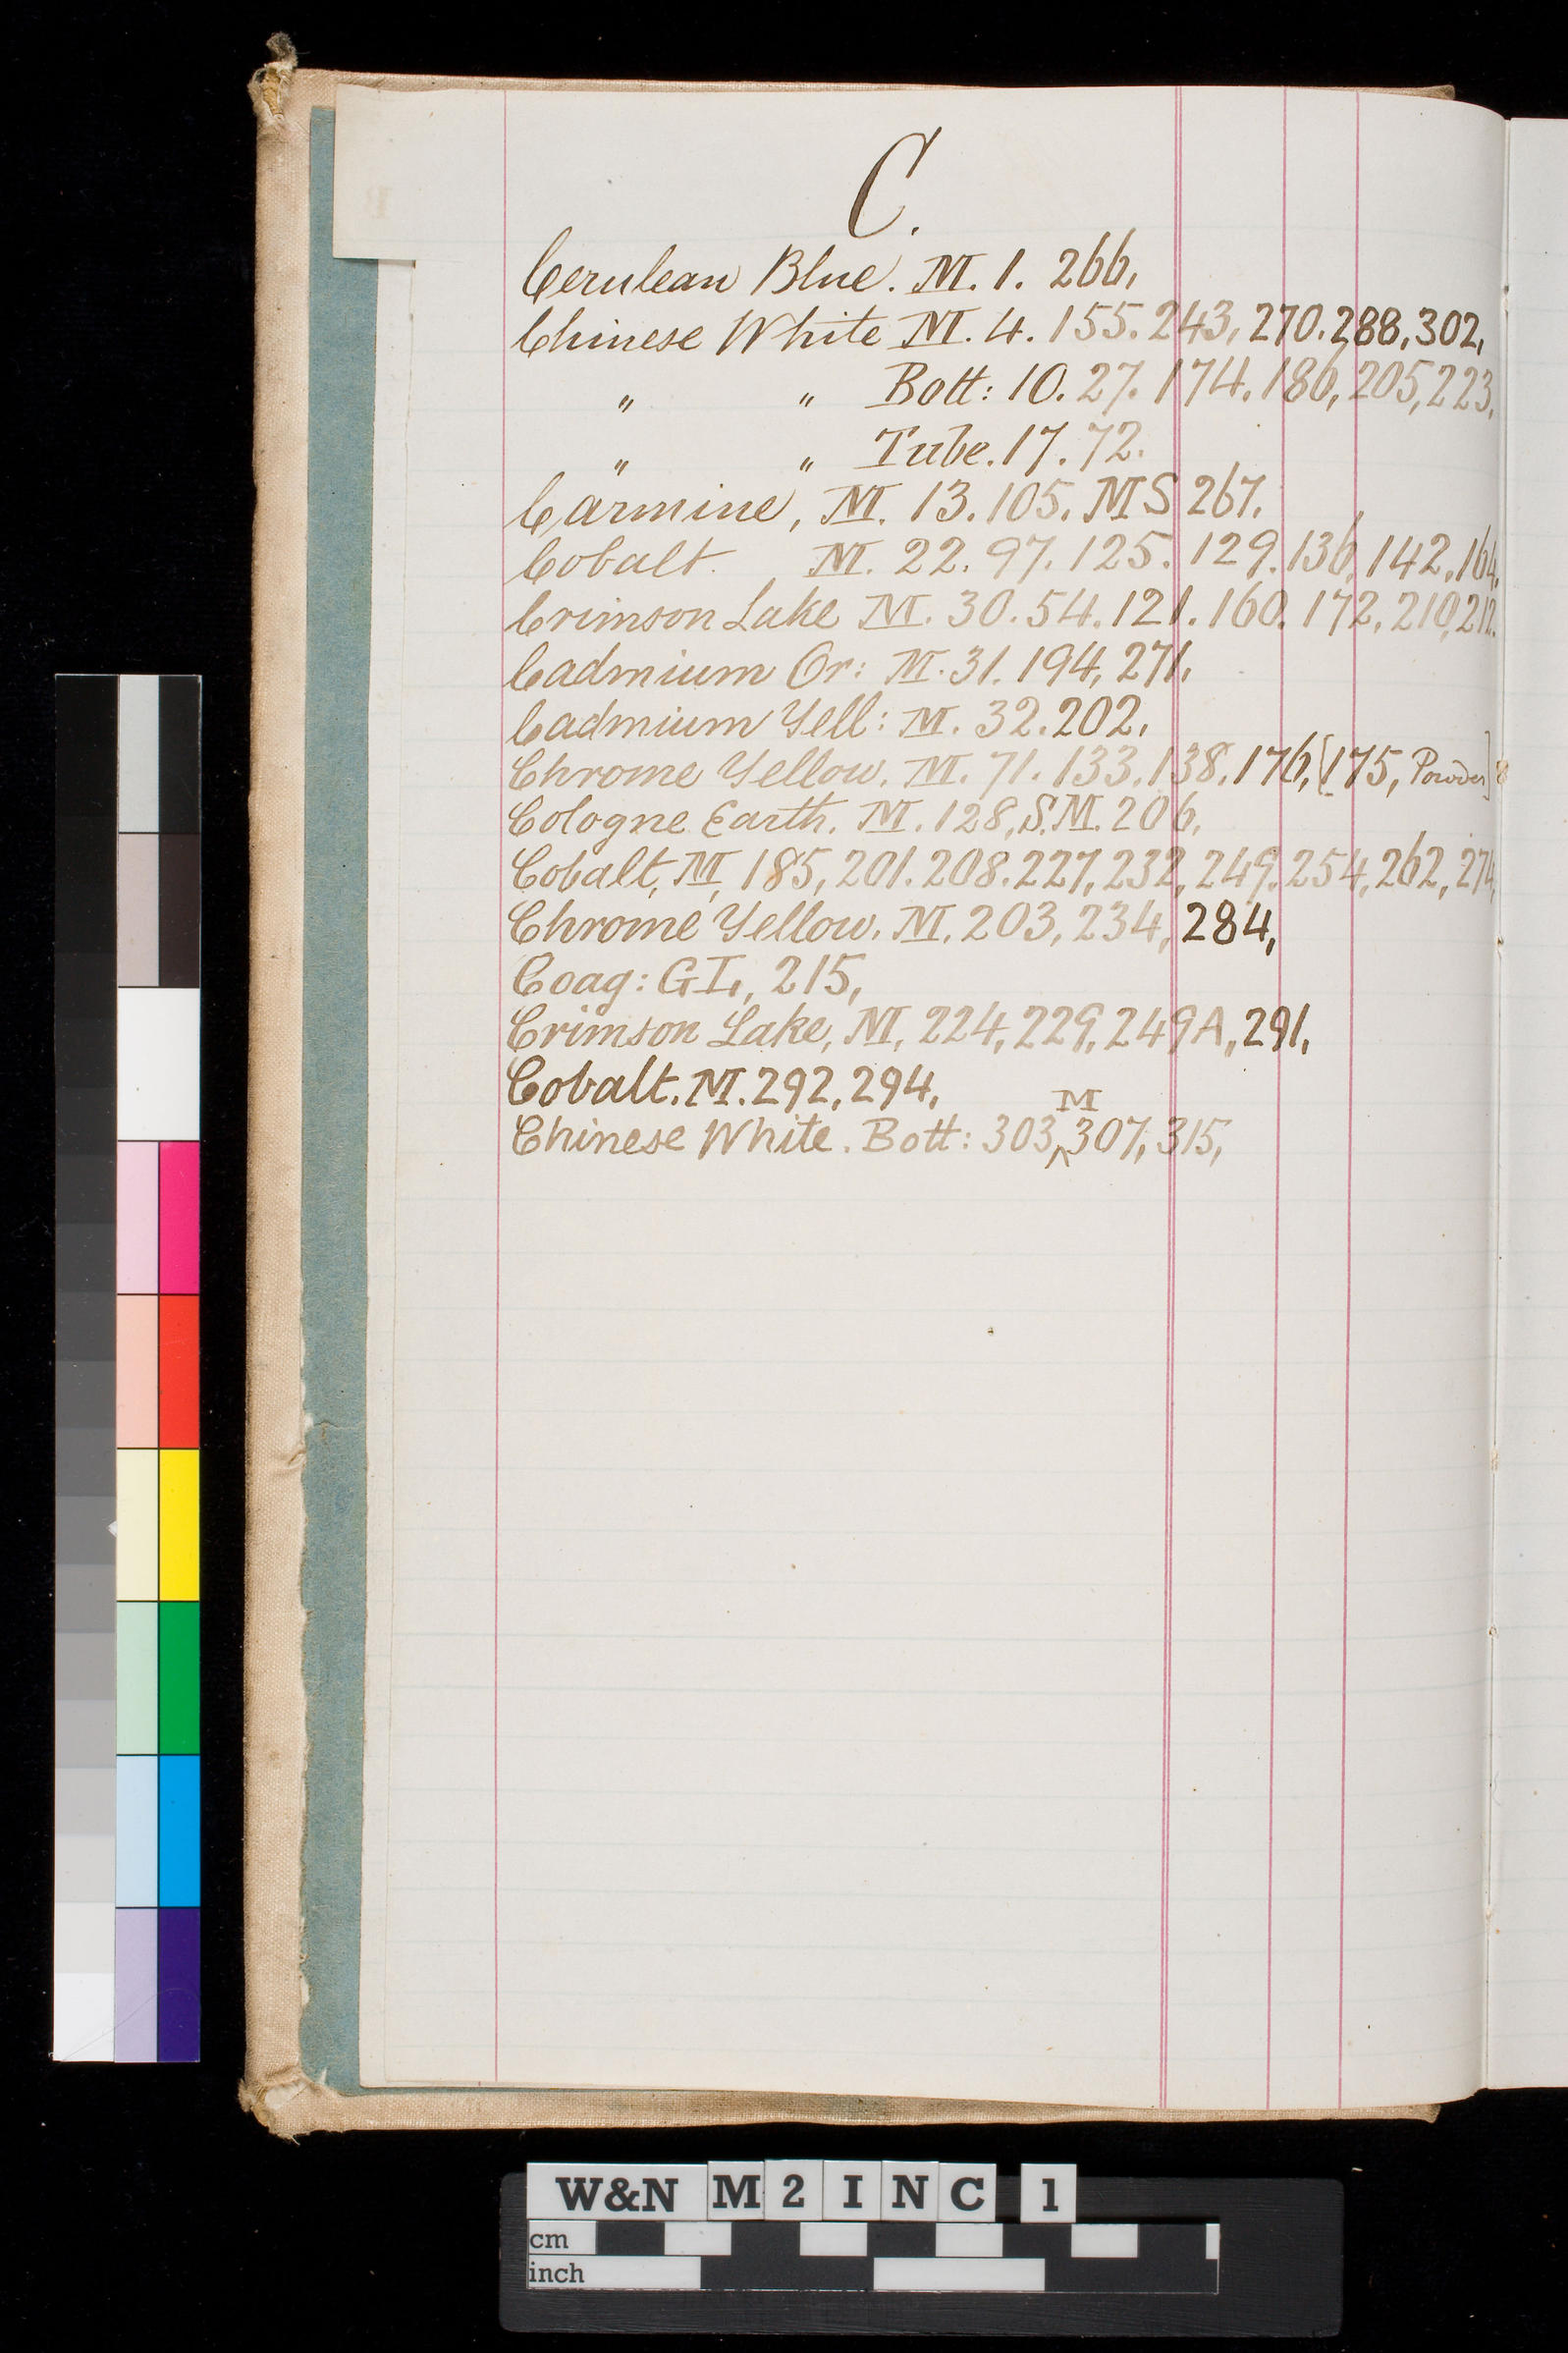 C.
Cerulean Blue. M. 1. 266,
Chinese White M. 4. 155. 243, 270. 288, 302,
" " Bott: 10. 27. 174. 186, 205, 223,
" " Tube. 17. 72.
Carmine, M. 13. 105. MS 267.
Cobalt. M. 22. 97. 125. 129. 136, 142. 164,
Crimson Lake M. 30. 54. 121. 160. 172, 210, 212.
Cadmium Or: M. 31. 194, 271,
Cadmium Yell: M. 32. 202,
Chrome Yellow. M. 71. 133. 138. 176, [175, Powder]
Cologne Earth. M. 128, S.M. 206,
Cobalt, M, 185, 201. 208. 227, 232, 249. 254, 262, 274,
Chrome Yellow. M. 203, 234, 284,
Coag: GI., 215,
Crimson Lake, M, 224, 229, 249A, 291,
Cobalt. M. 292, 294,
M
Chinese White. Bott: 303, ^ 307, 315,
W&N M 2 I N C 1
cm
inch